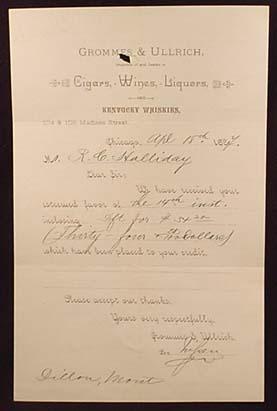 GROMMES & ULLRICH,
Cigars, Wines, Liquors,
AND
KENTUCKY WHISKIES,
Madison Street.
Chicago, Apl 18th 1887.
R. C. Halliday
Dear Sir:
We have received your
esteemed favor of the 14th inst.
inclosing dft for $34 20
(Thirty-four + 20 Dollars)
which have been placed to your credit.
Please accept our thanks.
Yours very respectfully,
Grommes & Ullrich
Per
Dillon, Mont